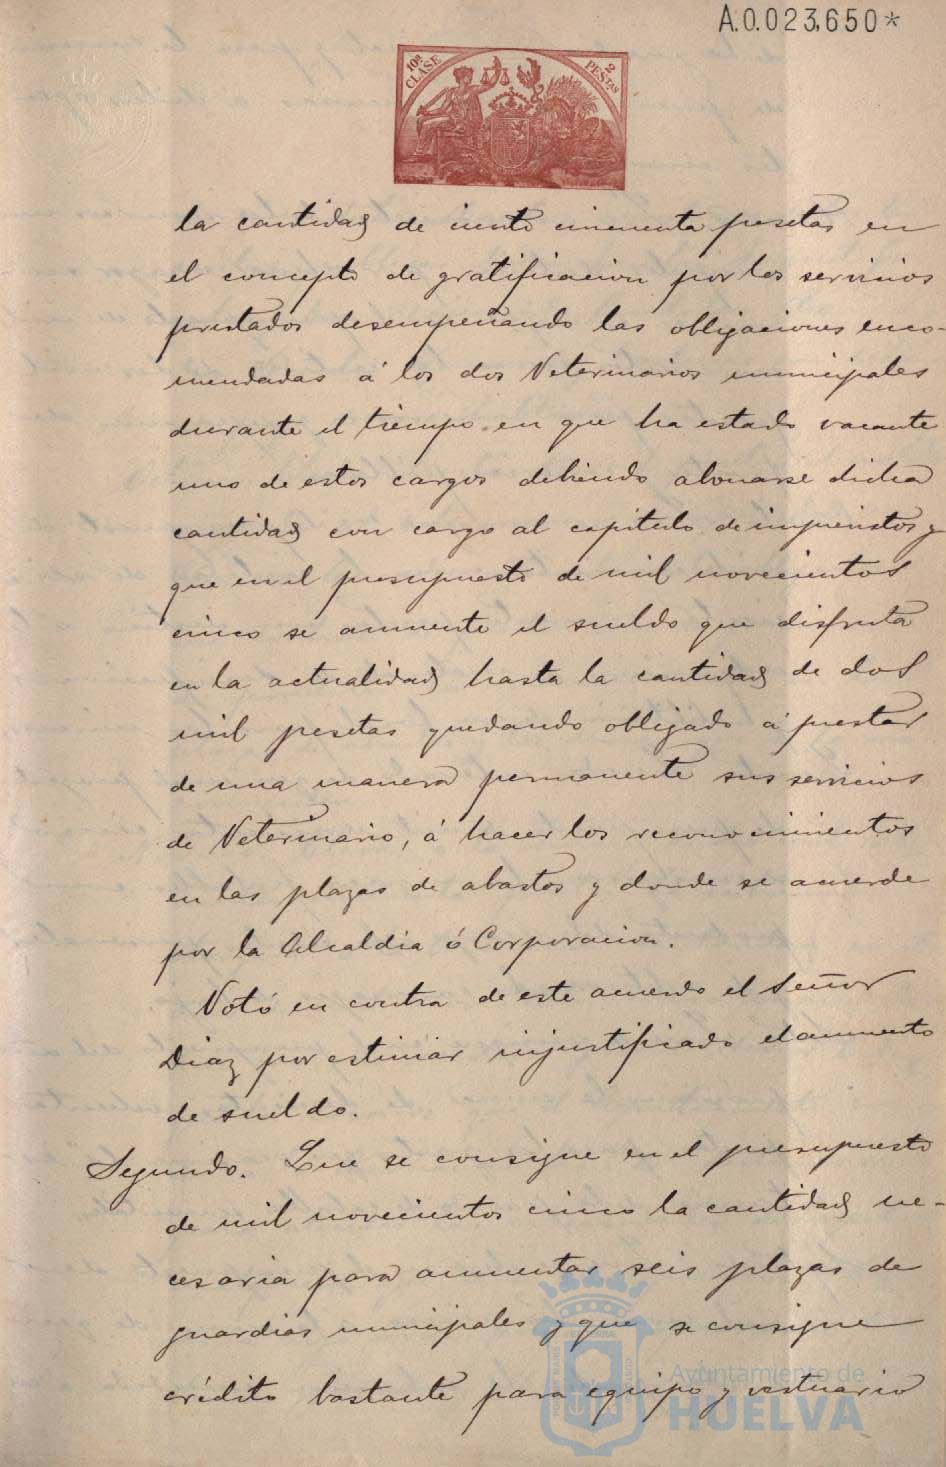 A.0.023,650*
10ª CLASE
2 PESTAS
la cantidad de ciento cincuenta pesetas en
el concepto de gratificacion por los servicios
prestados desempeñando las obligaciones enco-
mendadas á los dos Veterinarios municipales
durante el tiempo en que ha estado vacante
uno de estos cargos debiendo abonarse dicha
cantidad con cargo al capitulo de imprevistos y
que en el presupuesto de mil novecientos
cinco se aumente el sueldo que disfruta
en la actualidad hasta la cantidad de dos
mil pesetas quedando obligado á prestar
de una manera permanente sus servicios
de Veterinario, á hacer los reconocimientos
en las plazas de abastos y donde se acuerde
por la Alcaldia ó Corporacion.
Votó en contra de este acuerdo el Señor
Diaz por estimar injustificado el aumento
de sueldo.
Segundo. Que se consigne en el presupuesto
de mil novecientos cinco la cantidad ne-
cesaria para aumentar seis plazas de
guardias municipales y que se consigne
crédito bastante para equipo y vestuario
Ayuntamiento de
HUELVA